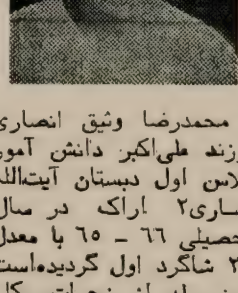 محمدرضا وثیق انصاری
رزند علی‌اکبر دانش آموز
لاس اول دبستان آیت‌الله
ساری۲ اراک در سال
حصیلی ٦٦ – ٦٥ با معدل
۲ شاگرد اول گردیده‌است